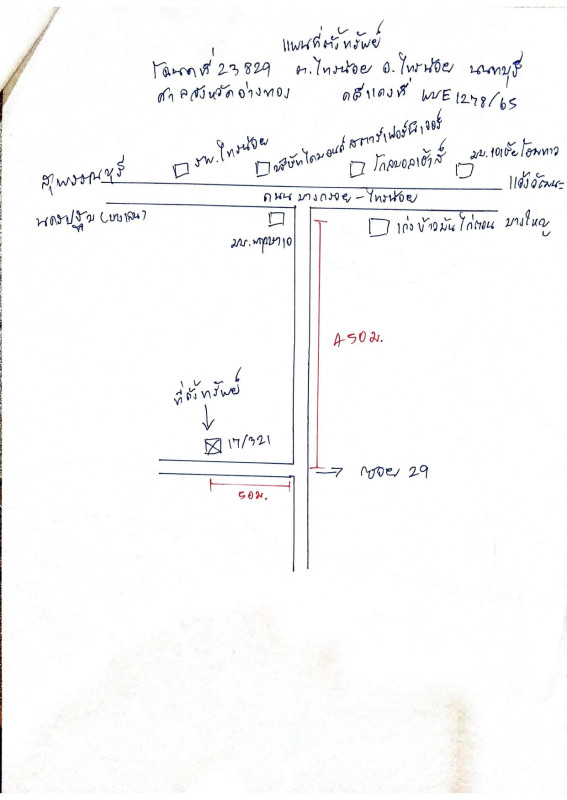 แผนที่ตั้งทรัพย์
โฉนดที่ 23829 ต.ไทรน้อย อ.ไทรน้อย นนทบุรี
ศาลจังหวัดอ่างทอง คดีแดงที่ ผบE1278/65
รพ.ไทรน้อย
บริษัทไดมอนด์สตาร์เฟอร์นิเจอร์
โกลบอลเฮ้าส์
มบ.
สุพรรณบุรี
แจ้งวัฒนะ
ถนน บางกรวย-ไทรน้อย
นครปฐม (บางเลน)
มบ.พฤกษา10
เก่งข้าวมันไก่ตอน
บางใหญ่
450ม.
ที่ตั้งทรัพย์
17/321
ซอย 29
50ม.